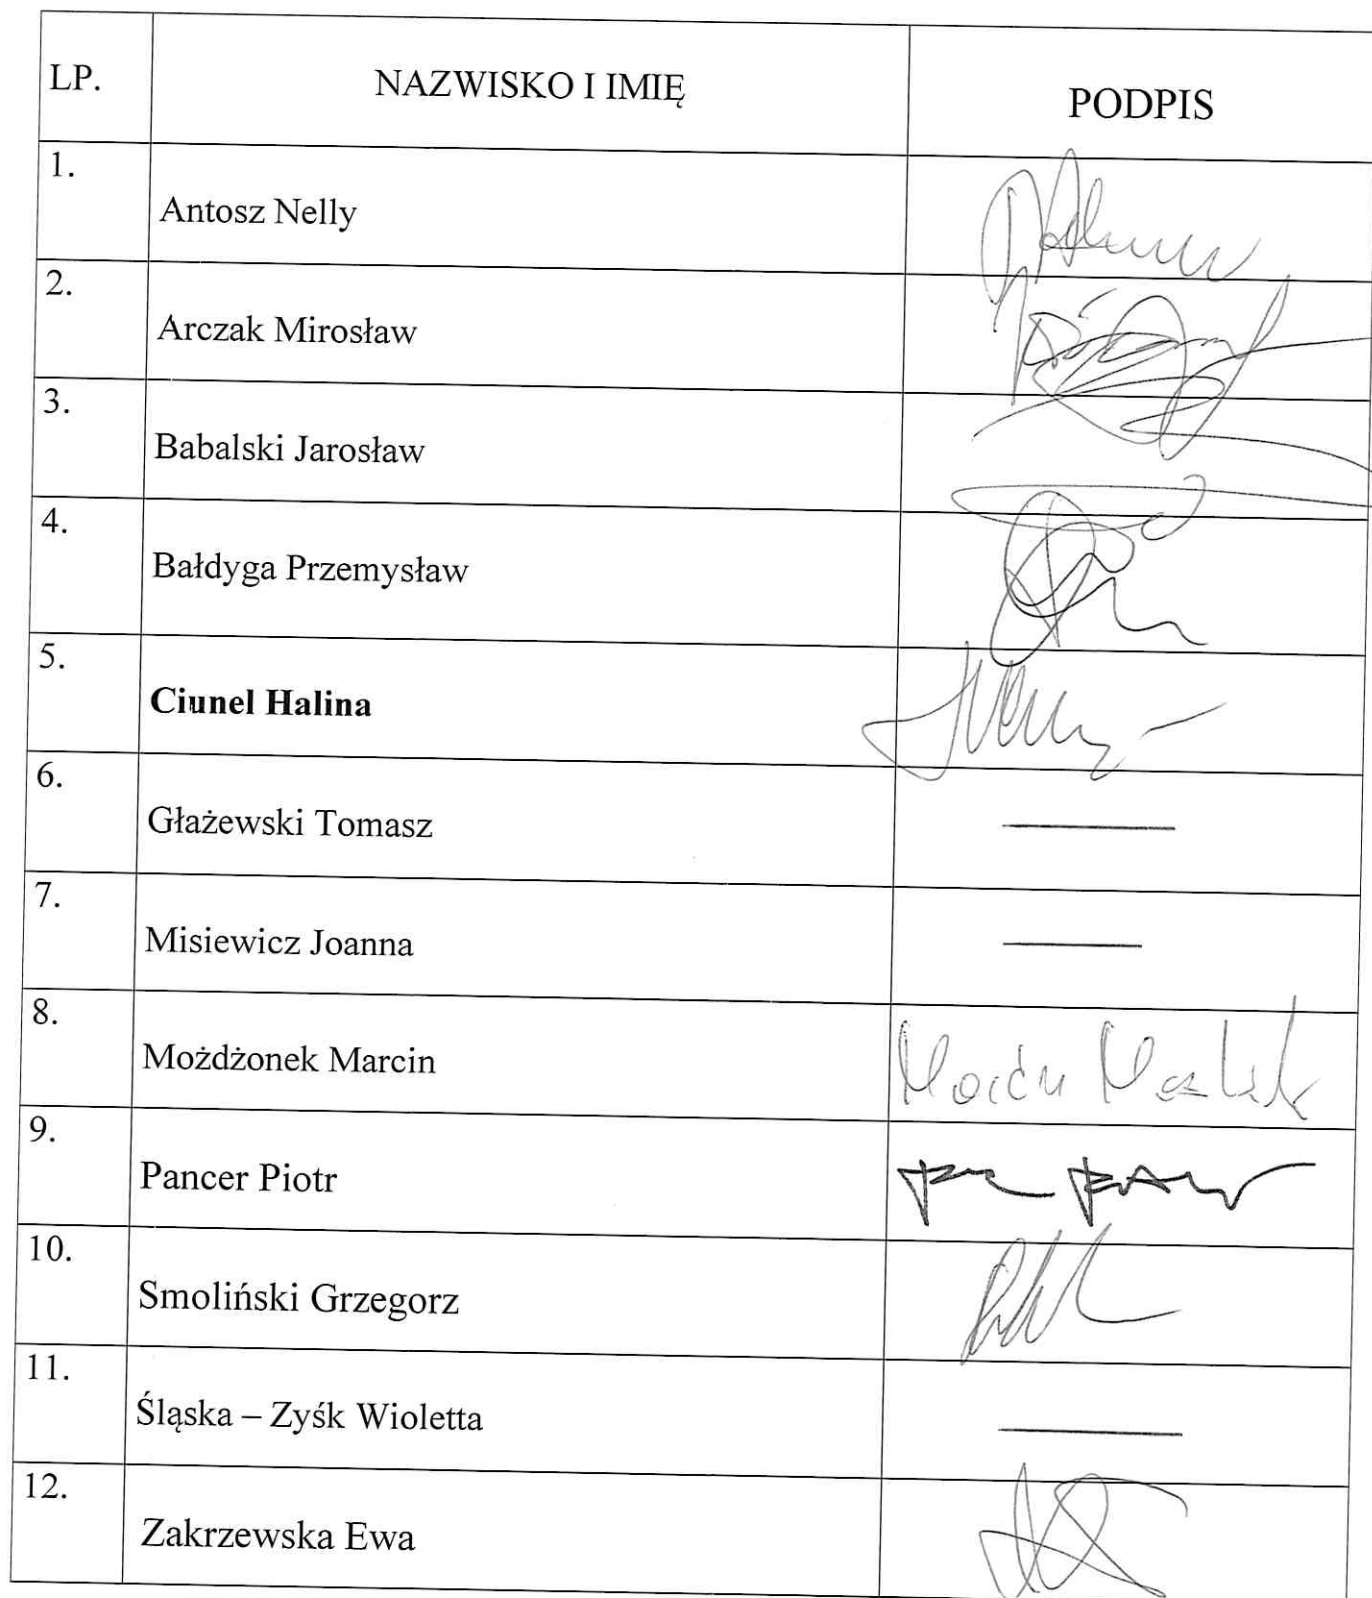 LP. NAZWISKO I IMIĘ PODPIS
1. Antosz Nelly
2. Arczak Mirosław
3. Babalski Jarosław
4. Bałdyga Przemysław
5. Ciunel Halina
6. Głażewski Tomasz
7. Misiewicz Joanna
8. Możdżonek Marcin
9. Pancer Piotr
10. Smoliński Grzegorz
11. Śląska – Zyśk Wioletta
12. Zakrzewska Ewa